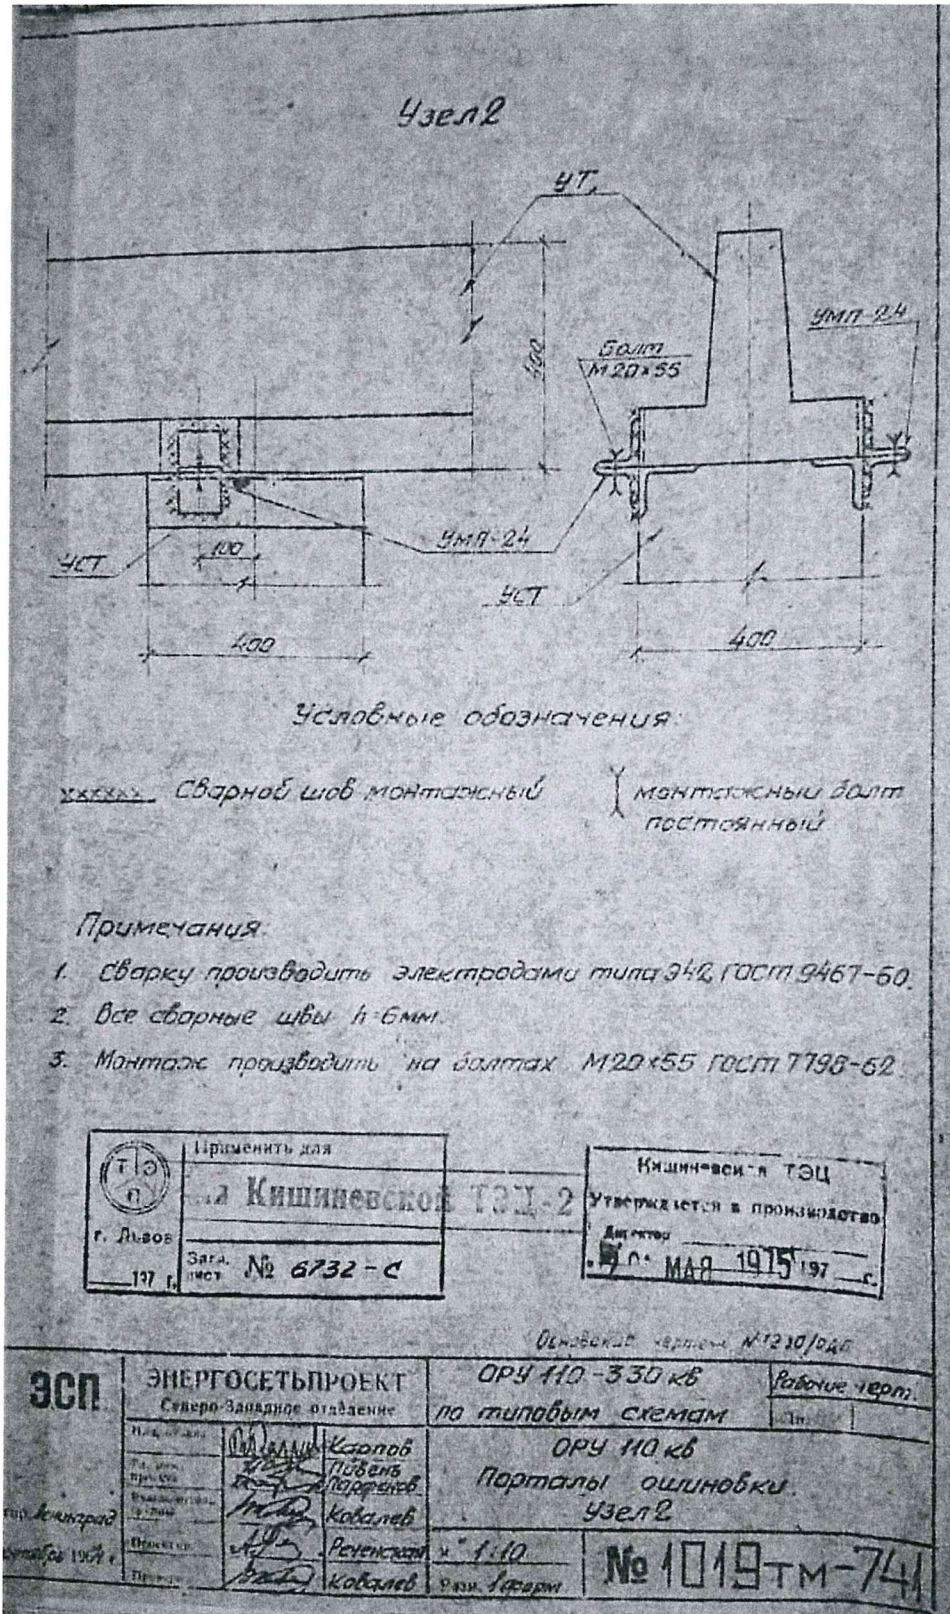 Узел 2
УТ
УМП-24
Болт
М20×55
400
УМП-24
УСТ
100
УСТ
400
400
Условные обозначения:
Сварной шов монтажный
монтажный болт
постоянный
Примечания:
1. Сварку производить электродами типа Э42 ГОСТ 9467-60.
2. Все сварные швы h=6мм.
3. Монтаж производить на болтах М20×55 ГОСТ 7798-62.
ТЭП
г. Львов
197 г.
Применить для
Кишиневской ТЭЦ-2
лист № 6732-С
Кишиневская ТЭЦ
Утверждается в производство
Директор
МАЯ 1975 197 г.
ЭСП
ЭНЕРГОСЕТЬПРОЕКТ
Северо-Западное отделение
ОРУ 110-330 кв
по типовым схемам
Рабочие черт.
Карпов
Пивень
Парфенов
Ковалев
Реченская
Ковалев
ОРУ 110 кв
Порталы ошиновки.
Узел 2
Ленинград
М 1:10
Разм. 1 форм
№ 1019тм-741